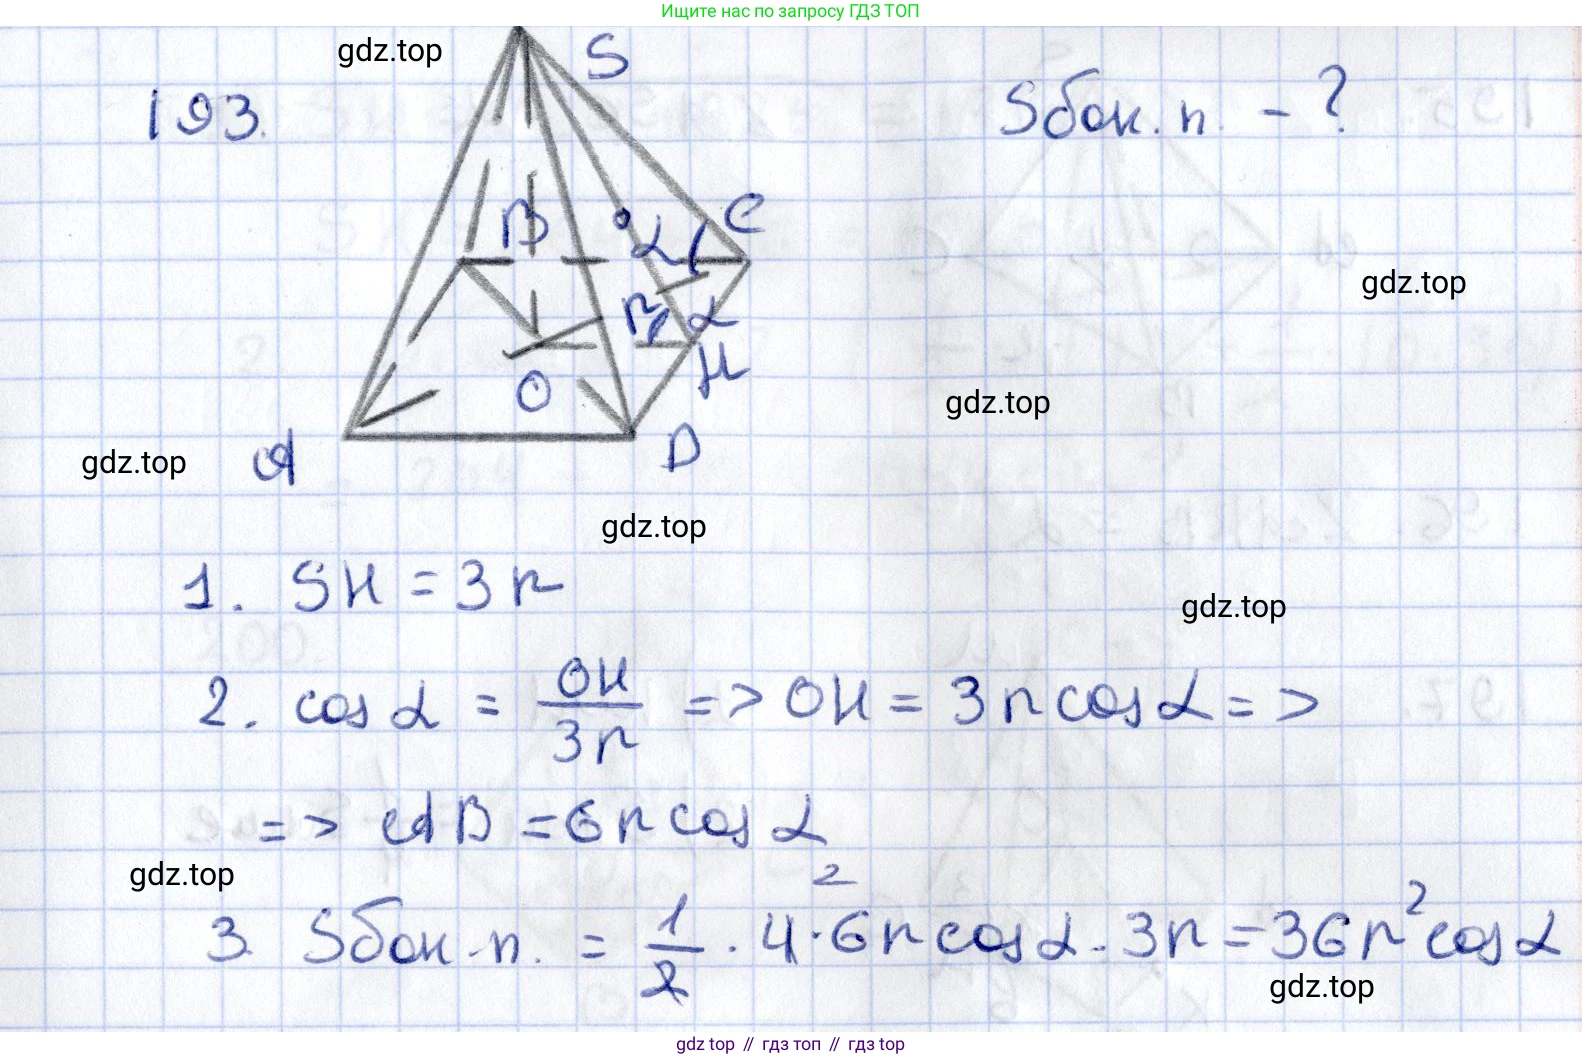 Ищите нас по запросу ГДЗ ТОП
gdz.top
S
193.
Sбок. п. - ?
B
C
α
gdz.top
r
α
H
O
gdz.top
gdz.top
A
D
gdz.top
1. SH = 3r
gdz.top
2. cos α = OH/3r => OH = 3r cos α =>
=> AB = 6r cos α
gdz.top
3. Sбок.п. = 1/2 · 4 · 6r cos α · 3r = 36r² cos α
2
gdz.top
gdz top // гдз топ // гдз top